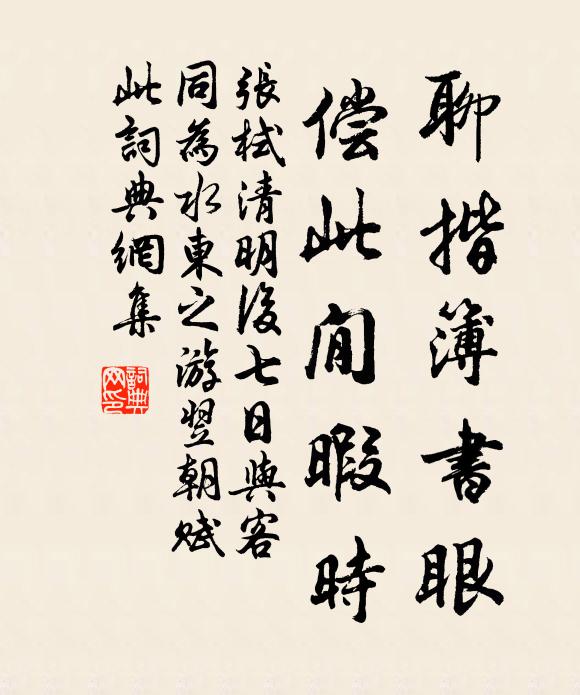 聊揩簿書眼
偿此閒暇時
張栻清明後七日與客
同為水東之游翌朝賦
此詞典網集
詞典
网印